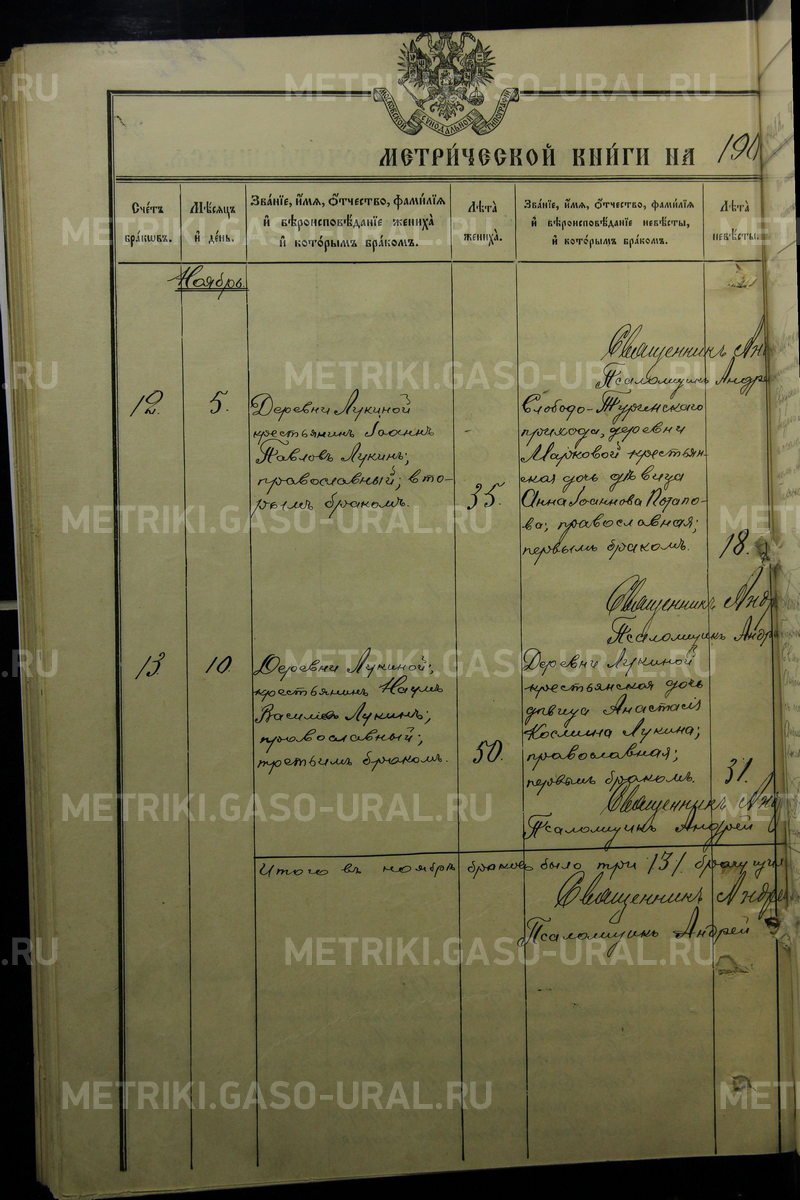 МОСКОВСКОЙ СѴНОДАЛЬНОЙ ТИПОГРАФІИ
МЕТРИ́ЧЕСКОЙ КНИ́ГИ НА 190
Сче́тъ бра́кωвъ.
Мѣ́сяцъ и҆ де́нь.
Зва́нїе, и҆́мѧ, ѻ҆́тчество, фами́лїѧ и҆ вѣроисповѣ́данїе жениха̀ и҆ кото́рымъ бра́комъ.
Лѣ́та жениха̀.
Зва́нїе, и҆́мѧ, ѻ҆́тчество, фами́лїѧ и҆ вѣроисповѣ́данїе невѣ́сты, и҆ кото́рымъ бра́комъ.
Лѣ́та невѣ́сты.
Ноябрь
Священникъ Ан
Псаломщикъ Андре
12.
5.
Деревни Лукиной
крестьянинъ Іоаннъ
Павловъ Лукинъ;
православный; вто-
рымъ бракомъ.
35.
Слободо-Туринскаго
прихода, деревни
Марковой крестьян-
ская дочь дѣвица
Анна Іоаннова Потапо-
ва; православная;
первымъ бракомъ.
18.
Священникъ Андр
Псаломщикъ Андре
13
10.
Деревни Лукиной;
крестьянинъ Наумъ
Васильевъ Лукинъ;
православный;
третьимъ бракомъ.
50.
Деревни Лукиной
крестьянская дочь
дѣвица Анастасія
Космина Лукина;
православная;
первымъ бракомъ.
31.
Священникъ Ан
Псаломщикъ Андрей
Итого въ ноябрѣ браковъ было три /3/
Священникъ Андре
Псаломщикъ Андрей
METRIKI.GASO-URAL.RU